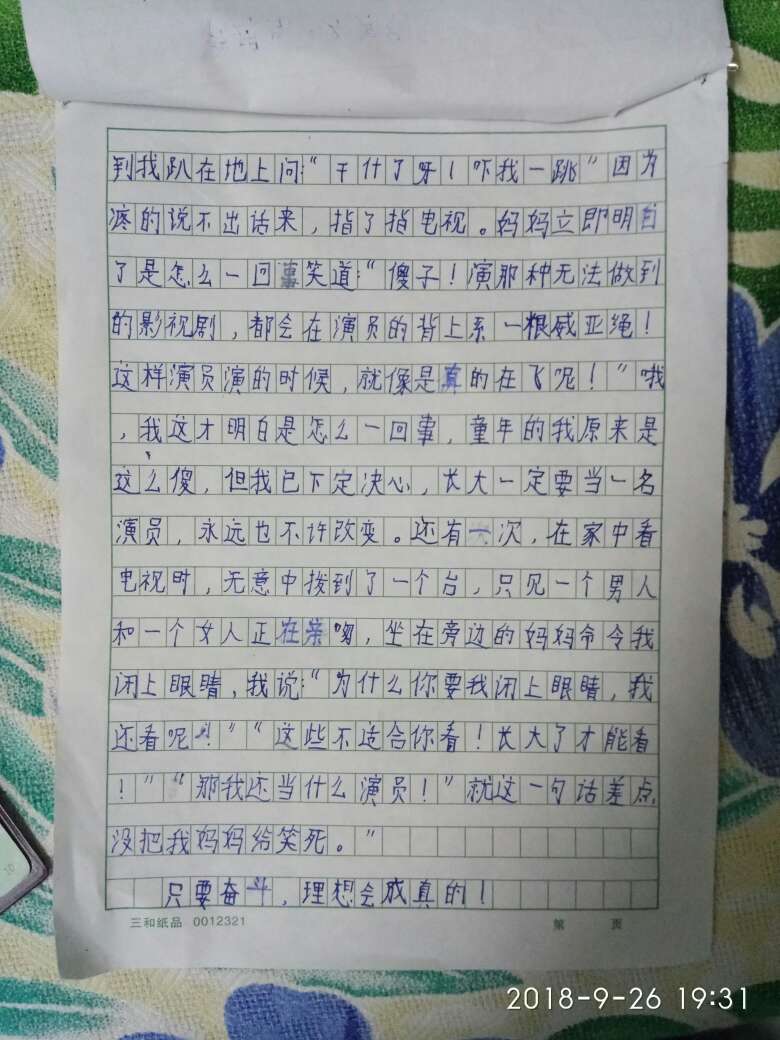 到我趴在地上问：“干什了呀！吓我一跳”因为
疼的说不出话来，指了指电视。妈妈立即明白
了是怎么一回事笑道：“傻子！演那种无法做到
的影视剧，都会在演员的背上系一根威亚绳！
这样演员演的时候，就像是真的在飞呢！”哦
，我这才明白是怎么一回事，童年的我原来是
这么傻，但我已下定决心，长大一定要当一名
演员，永远也不许改变。还有一次，在家中看
电视时，无意中拨到了一个台，只见一个男人
和一个女人正在亲吻，坐在旁边的妈妈命令我
闭上眼睛，我说：“为什么你要我闭上眼睛，我
还看呢！”“这些不适合你看！长大了才能看
！”“那我还当什么演员！”就这一句话差点
没把我妈妈给笑死。”
只要奋斗，理想会成真的！
三和纸品 0012321 第 页
2018-9-26 19:31